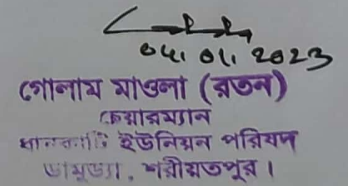 04.01.2023
গোলাম মাওলা (রতন)
চেয়ারম্যান
ধানকাটি ইউনিয়ন পরিষদ
ডামুড্যা, শরীয়তপুর।